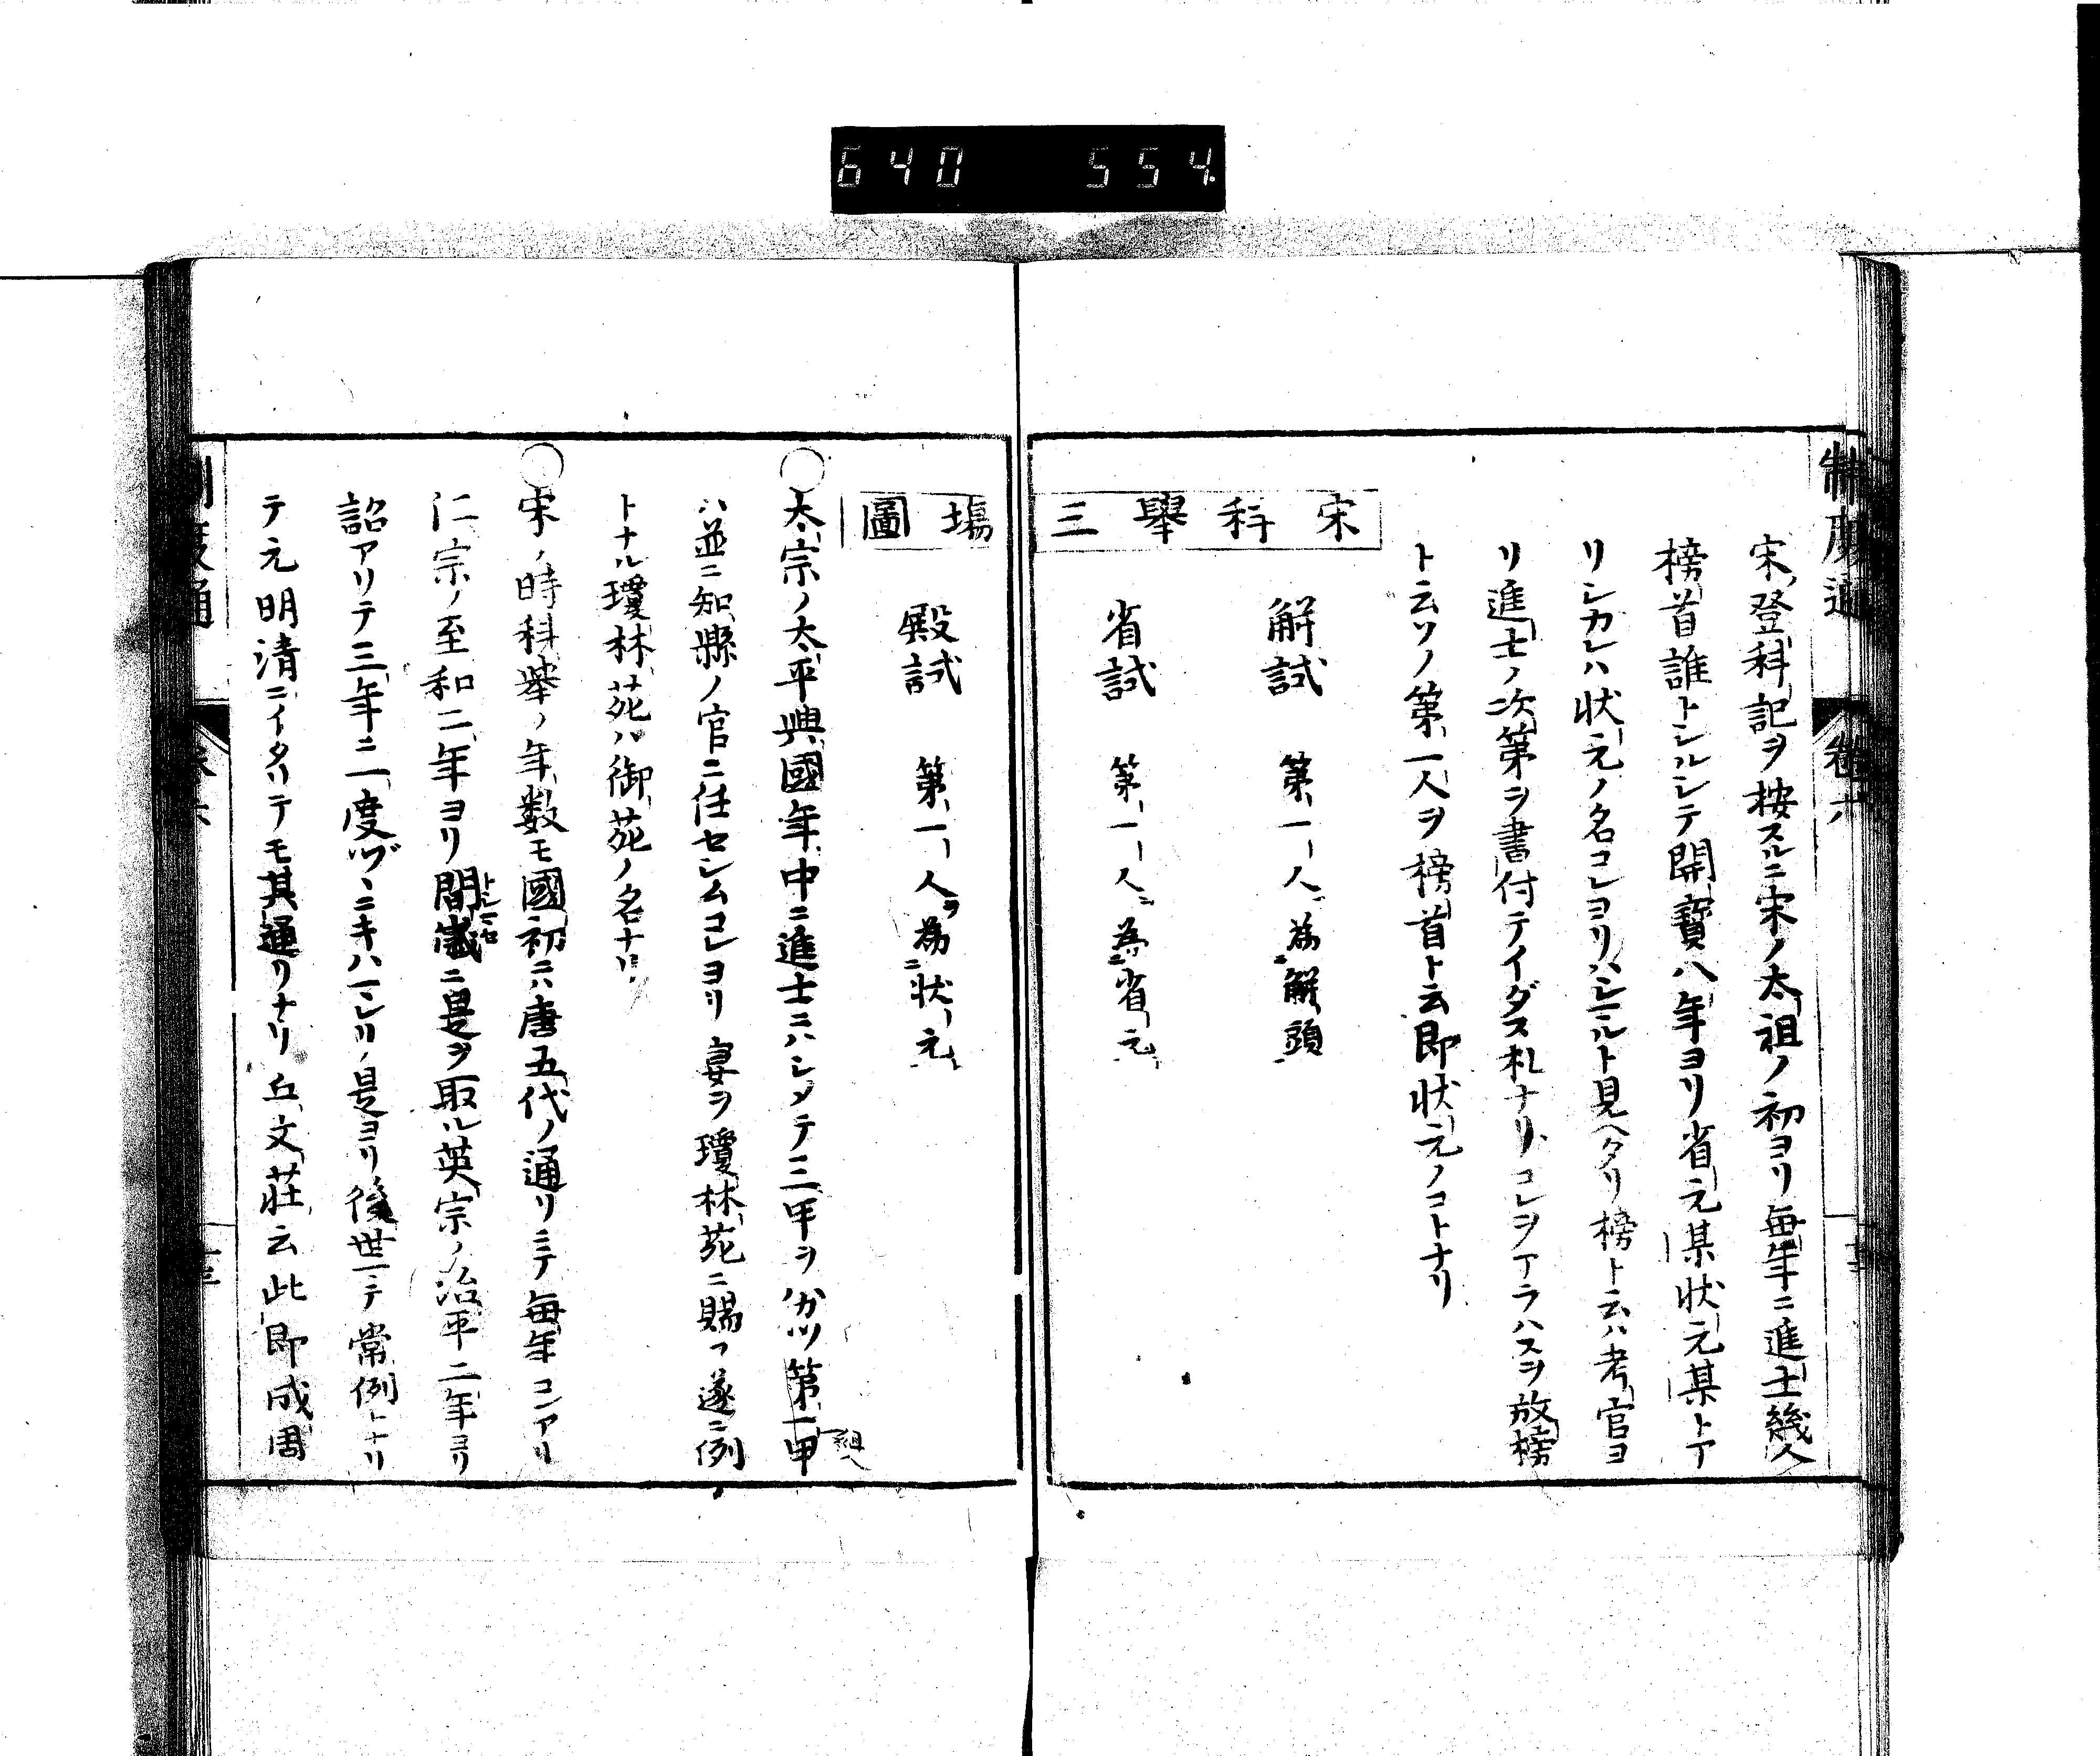 640 554
制度通 卷六
宋ノ登科記ヲ按スルニ宋ノ太祖ノ初ヨリ毎年ニ進士幾人
榜首誰トシルシテ開寳八年ヨリ省元某状元某トア
リシカレハ状元ノ名コレヨリハシマルト見ヘタリ榜ト云ハ考官ヨ
リ進士ノ次第ヲ書付テイダス札ナリコレヲアラハスヲ放榜
ト云ソノ第一人ヲ榜首ト云即状元ノコトナリ
宋科舉三
解試 第一人為解頭
省試 第一人為省元
塲圖
殿試 第一人ヲ為状元
○太宗ノ太平興國年中ニ進士ニハシメテ三甲ヲハカツ第一甲
ハ並ニ知縣ノ官ニ任センムコレヨリ宴ヲ瓊林苑ニ賜フ遂ニ例
トナル瓊林苑ハ御苑ノ名ナリ
○宋ノ時科舉ノ年数モ國初ニハ唐五代ノ通リニテ毎年コレアリ
仁宗ノ至和二年ヨリ間歳ニ是ヲ取ル英宗ノ治平二年ヨリ
詔アリテ三年ニ一度ヅヽニキハマレリ是ヨリ後世ニテ常例トナリ
テ元明清ニイタリテモ其通リナリ丘文莊云此即成周